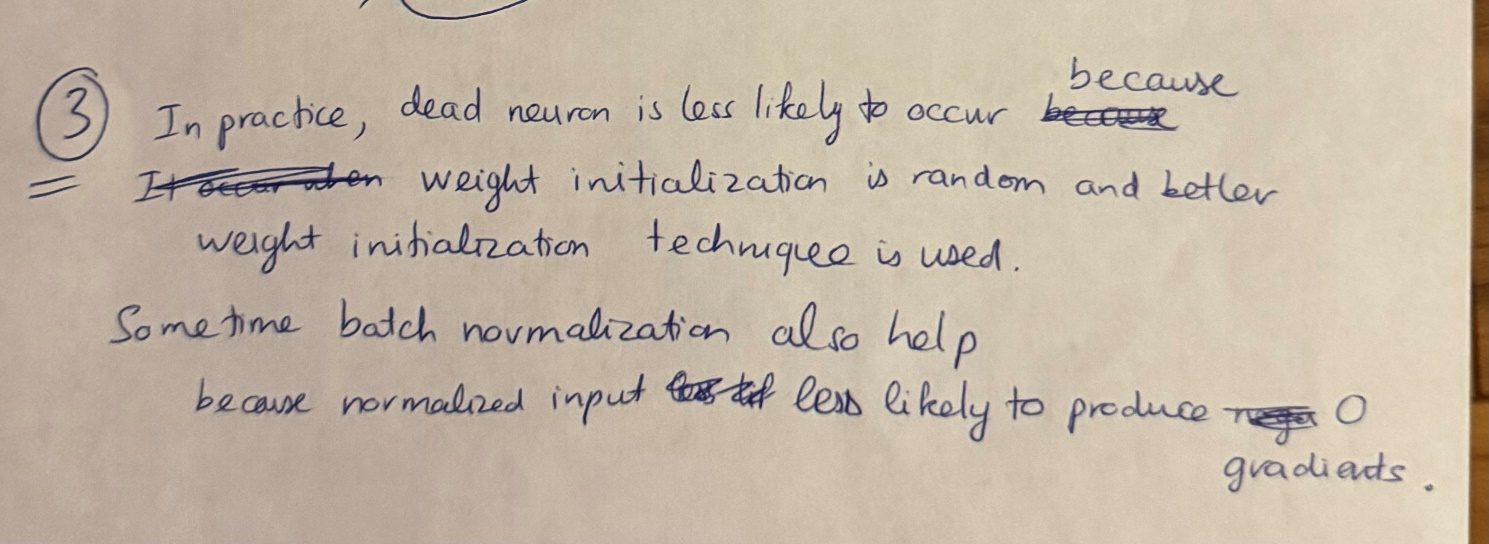 ③ In practice, dead neuron is less likely to occur because
weight initialization is random and better
weight initialization technique is used.
Sometime batch normalization also help
because normalized input less likely to produce 0
gradients.